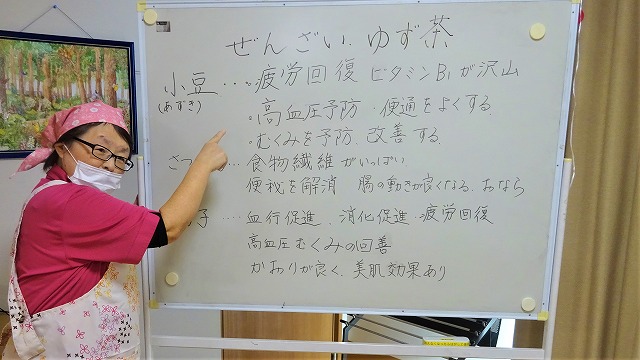 ぜんざい、ゆず茶
小豆 ・・・。疲労回復 ビタミンB1が沢山
(あずき) 。高血圧予防・便通をよくする。
。むくみを予防、改善する。
さつ ・・・ 食物繊維がいっぱい
便秘を解消 腸の動きが良くなる、おなら
子 ・・・・ 血行促進、消化促進・疲労回復
高血圧むくみの回善
かおりが良く、美肌効果あり